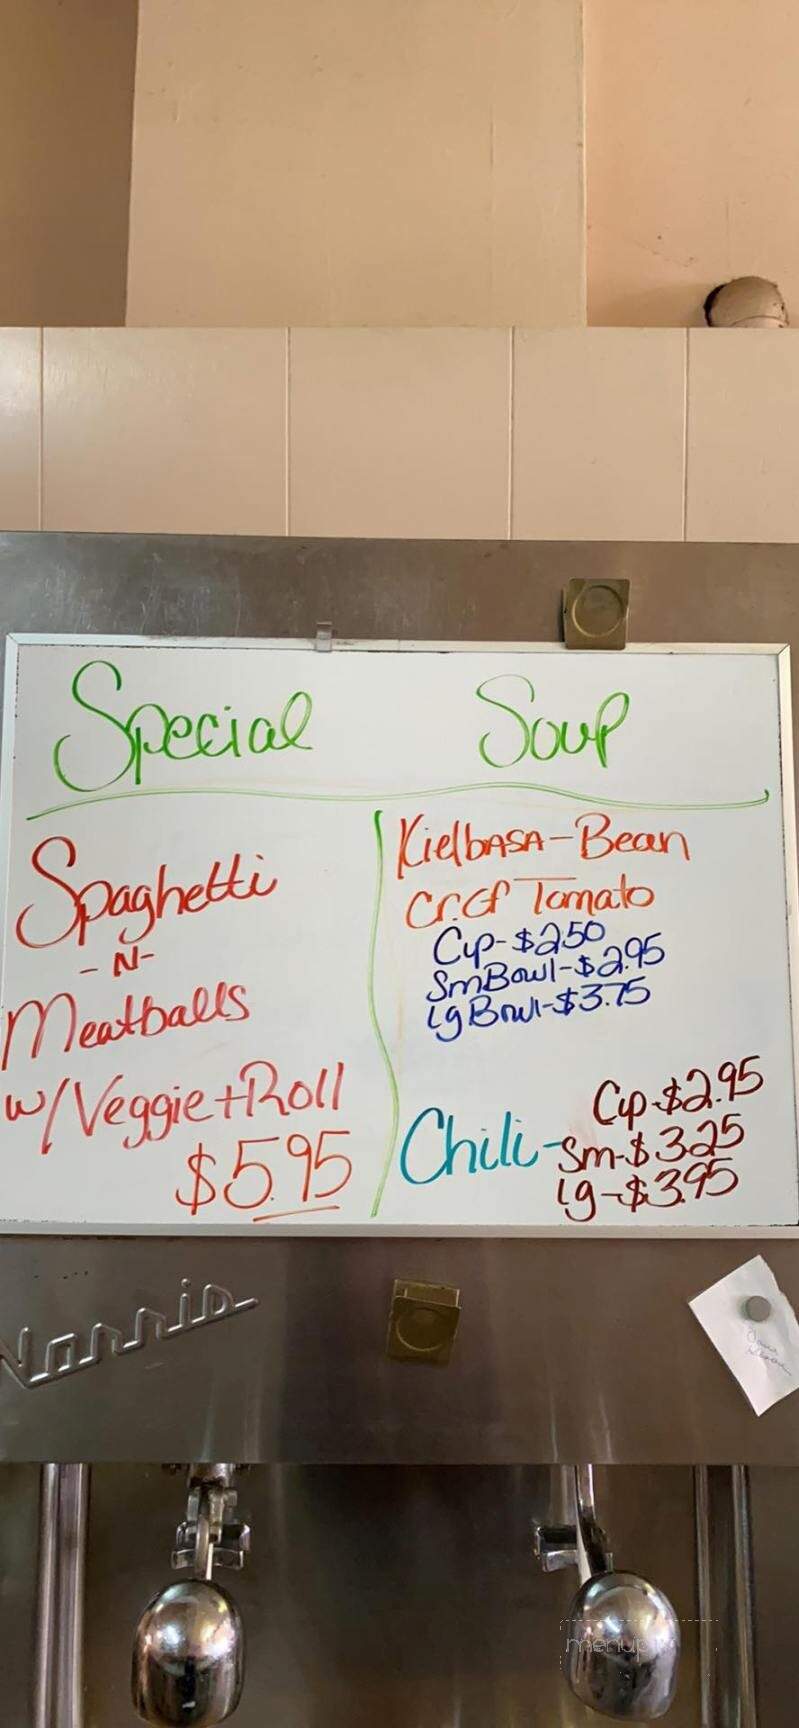 Special
Spaghetti
-N-
Meatballs
w/Veggie+Roll
$5.95
Soup
Kielbasa-Bean
Cr. of Tomato
Cup-$2.50
Sm Bowl-$2.95
Lg Bowl-$3.75
Chili-
Cup-$2.95
Sm-$3.25
Lg-$3.95
Norris